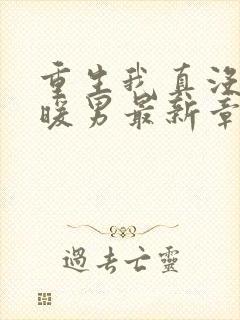 重生我真没
暖男最新章
過去亡靈